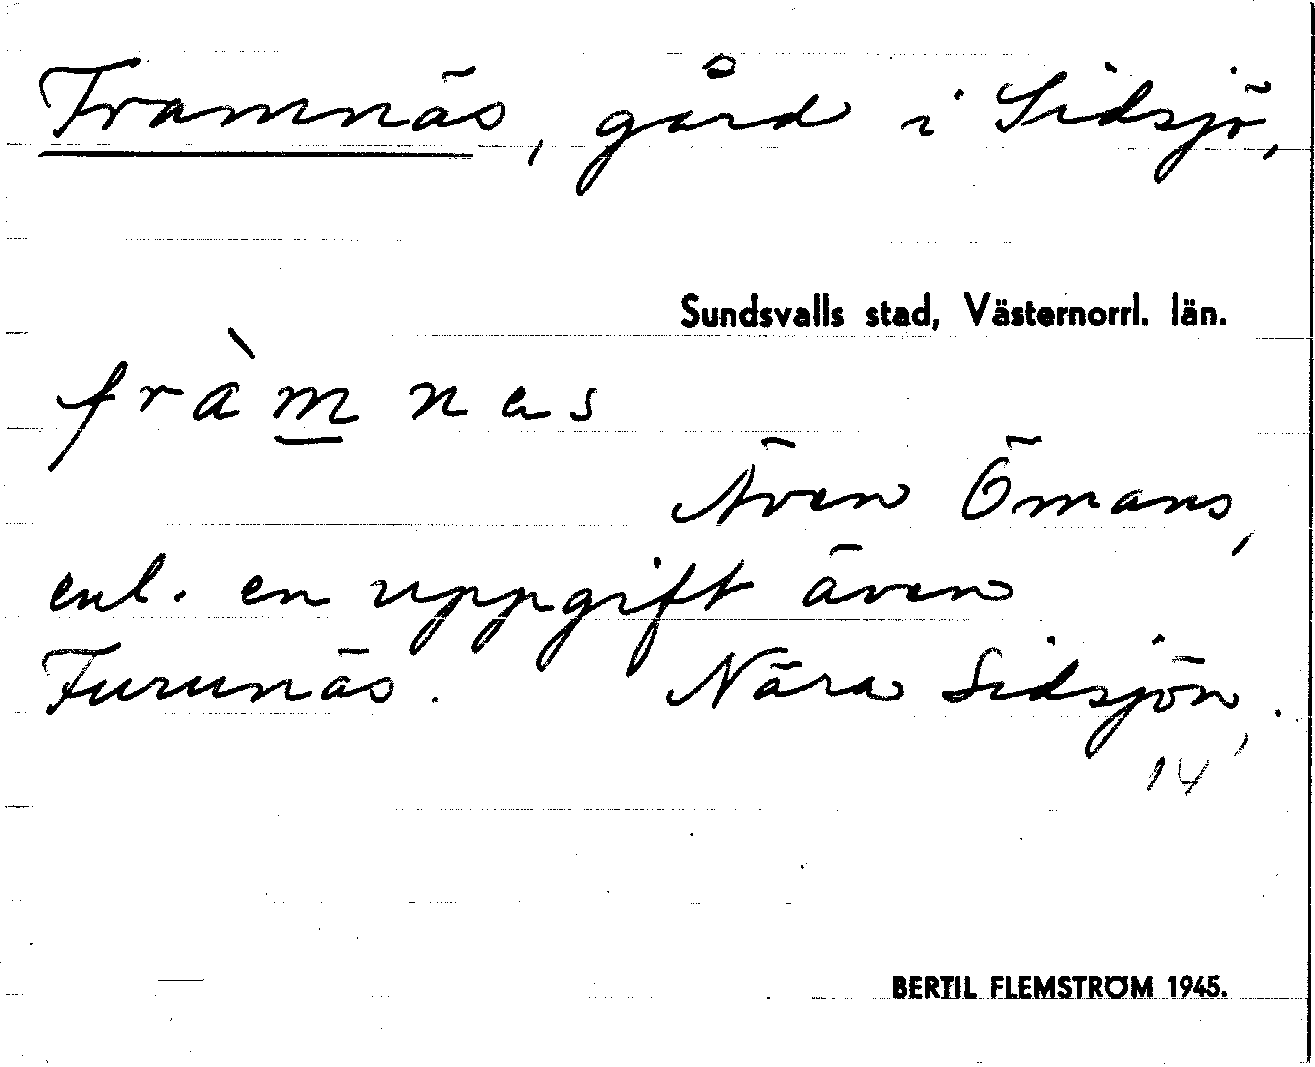 Framnäs, gård i Sidsjö,
Sundsvalls stad, Västernorrl. län.
fràm̲nas
Även Ömans,
enl. en uppgift även
Furunäs. Nära Sidsjön,.
14
BERTIL FLEMSTRÖM 1945.